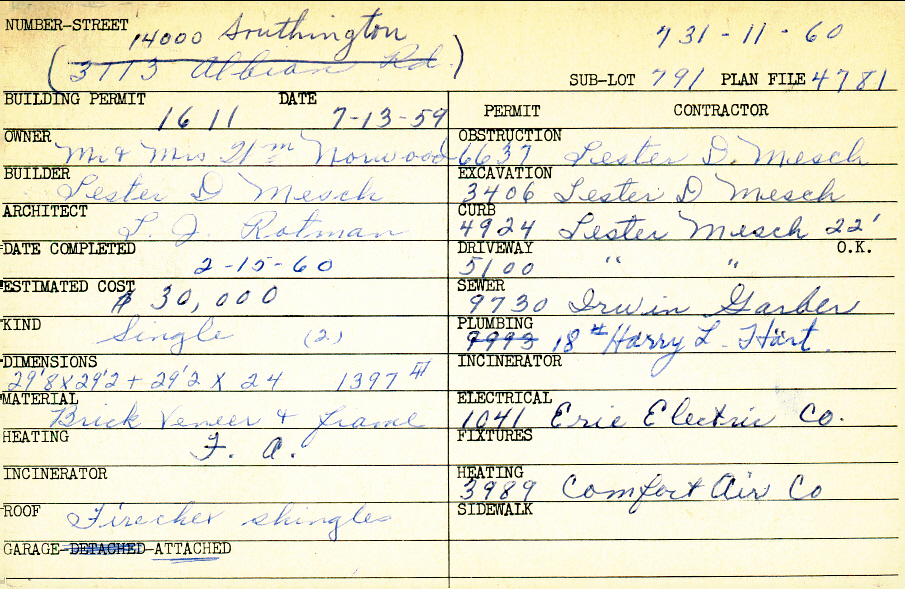 NUMBER-STREET 14000 Southington 731-11-60
(3113 Albion Rd.)
SUB-LOT 791 PLAN FILE 4781
BUILDING PERMIT 1611 DATE 7-13-59
PERMIT CONTRACTOR
OWNER Mr & Mrs Norwood
OBSTRUCTION 6637 Lester D. Mesch
BUILDER Lester D Mesch
EXCAVATION 3406 Lester D Mesch
ARCHITECT L. J. Rotman
CURB 4924 Lester Mesch 22'
DATE COMPLETED 2-15-60
DRIVEWAY 5100 " " O.K.
ESTIMATED COST $ 30,000
SEWER 9730 Irwin Garber
KIND Single (2)
PLUMBING 9993 18 # Harry L. Hart.
DIMENSIONS 29'8 x 29'2 + 29'2 x 24 1397
INCINERATOR
MATERIAL Brick Veneer & frame
ELECTRICAL 1041 Erie Electric Co.
HEATING F. A.
FIXTURES
INCINERATOR
HEATING 3989 Comfort Air Co
ROOF Firechex shingles
SIDEWALK
GARAGE-DETACHED-ATTACHED